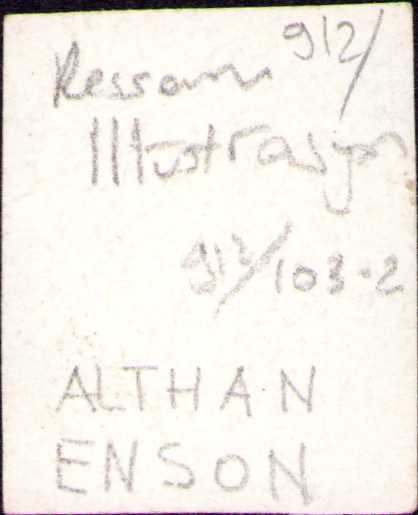 Ressam 912/
Illustrasyon
912/103-2
ALTHAN
ENSON